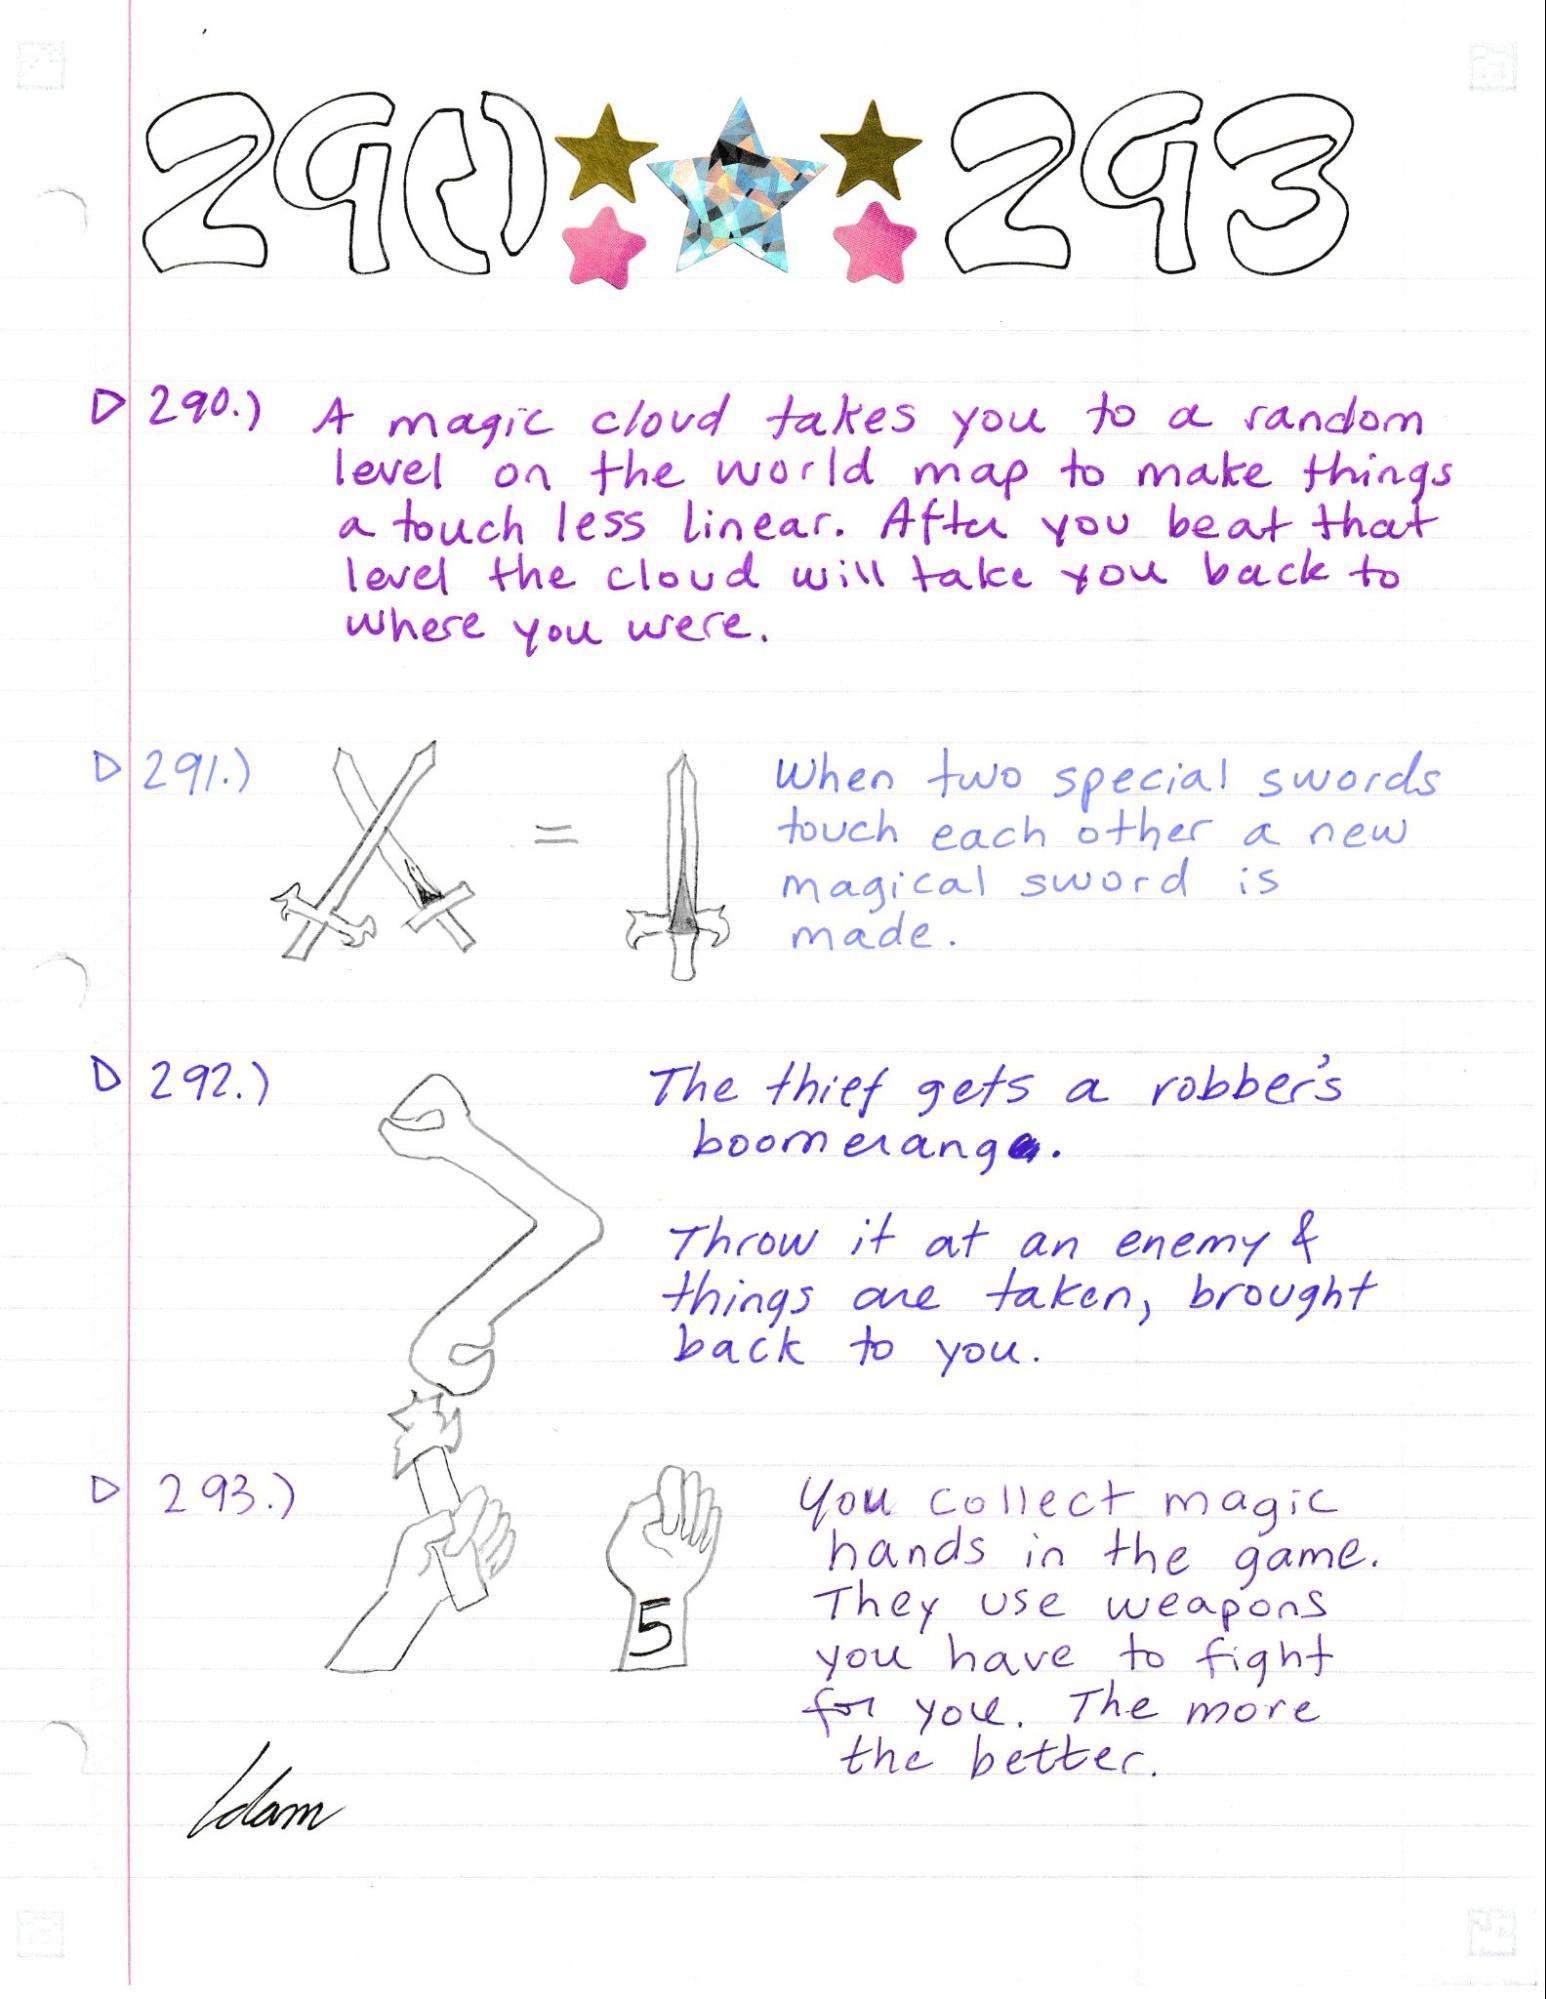 290 293
290.) A magic cloud takes you to a random
level on the world map to make things
a touch less linear. After you beat that
level the cloud will take you back to
where you were.
291.) = When two special swords
touch each other a new
magical sword is
made.
292.) The thief gets a robber's
boomerang.
Throw it at an enemy &
things are taken, brought
back to you.
293.) You collect magic
hands in the game.
They use weapons
5
you have to fight
for you. The more
the better.
Adam